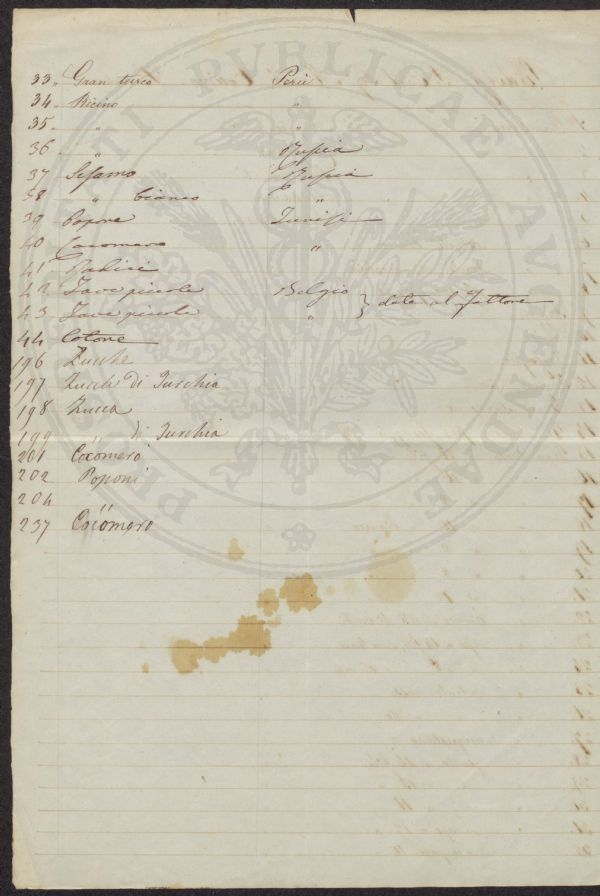 33. Gran turco Perù
34. Ricino "
35. " "
36 " Russia
37 Sesamo Russia
38 " bianco "
39 Popone Tunisi
40 Cocomero "
41 Radici
42 Fave piccole Belgio } date al Fattore
43 Fave piccole "
44 Cotone
196 Zucche
197 Zucche di Turchia
198 Zucca
199 " di Turchia
201 Cocomero
202 Poponi
204 "
237 Cocomero
PUBLICAE AUGENDAE